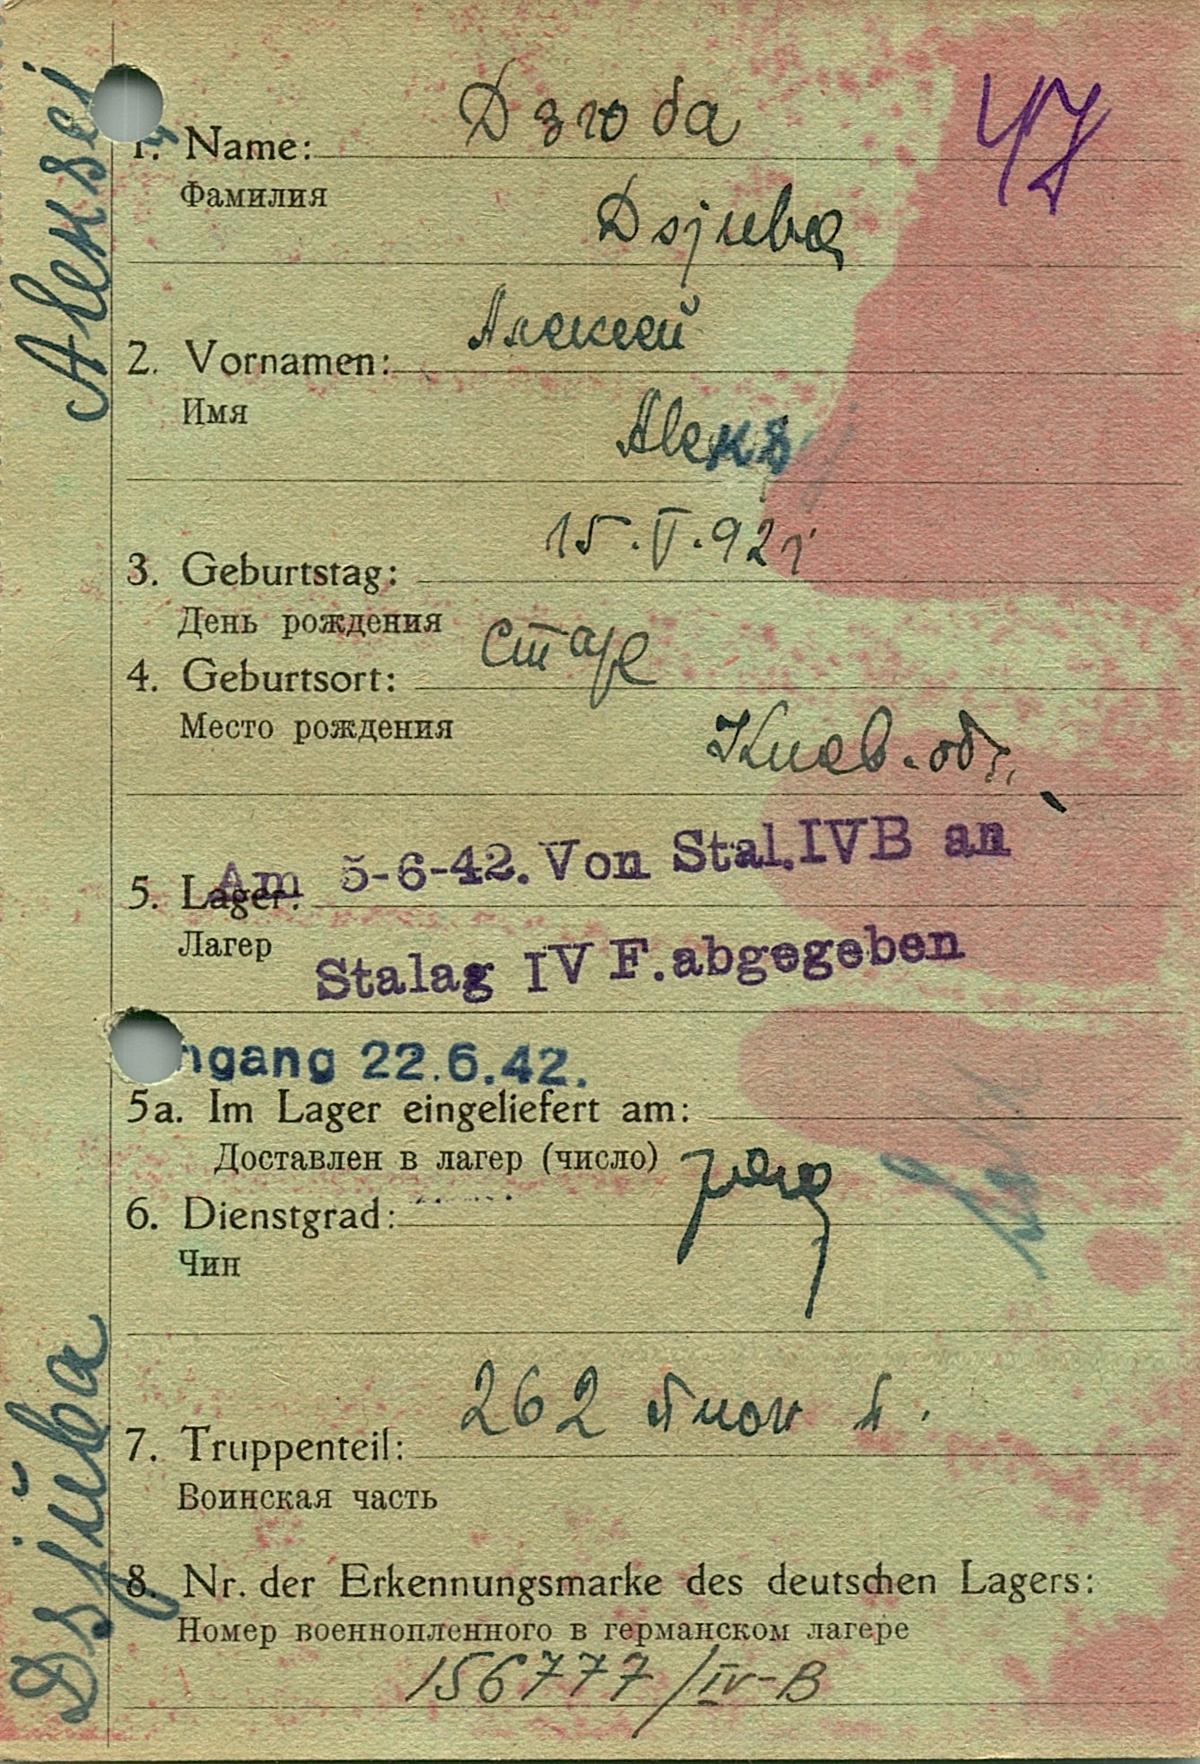 Aleksei
Dsjuba
Дзюба
47
1. Name:
Фамилия
Dsjuba
Алексей
2. Vornamen:
Имя
Aleks
15.V.921
3. Geburtstag:
День рождения
4. Geburtsort:
Место рождения
Киев. обл.
Am 5-6-42. Von Stal. IVB an
5. Lager:
Лагер
Stalag IV F. abgegeben
ngang 22.6.42.
5a. Im Lager eingeliefert am:
Доставлен в лагер (число)
6. Dienstgrad:
Чин
262
7. Truppenteil:
Воинская часть
8. Nr. der Erkennungsmarke des deutschen Lagers:
Номер военнопленного в германском лагере
156777/IV-B